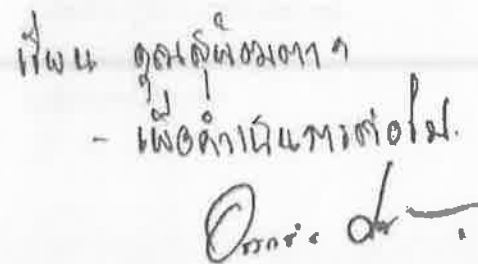 เรียน คุณสุพัฒตา ฯ
- เพื่อดำเนินการต่อไป.